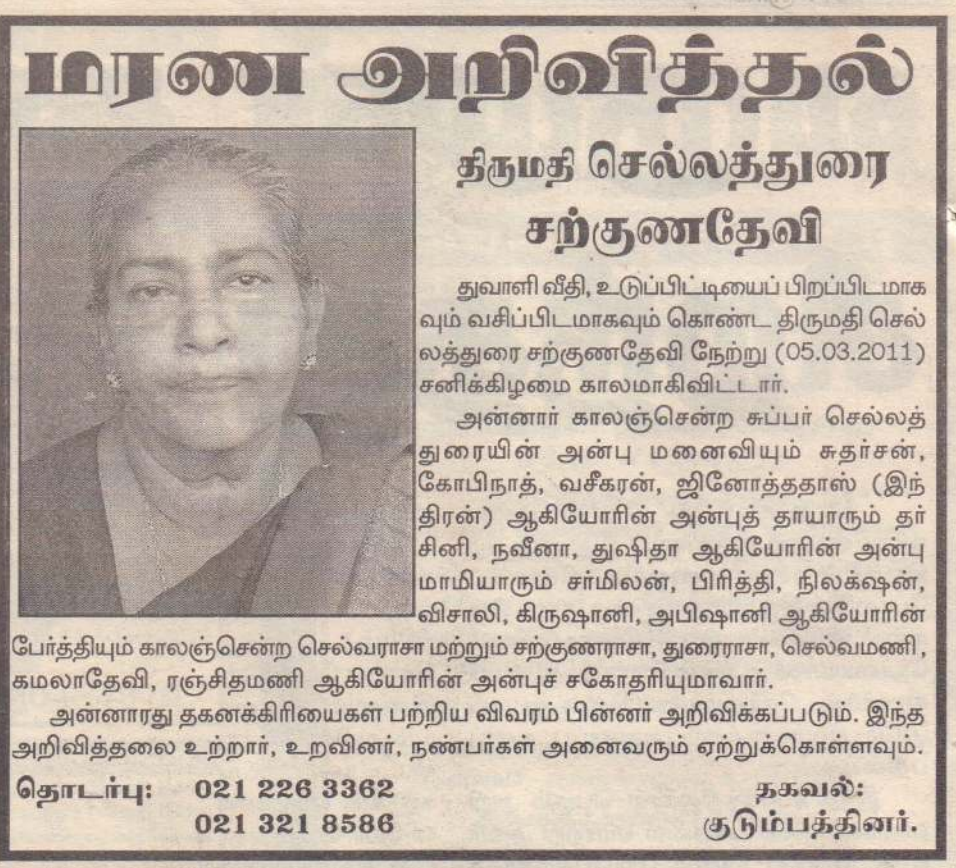 மரண அறிவித்தல்
திருமதி செல்லத்துரை
சற்குணதேவி
துவாளி வீதி, உடுப்பிட்டியைப் பிறப்பிடமாக
வும் வசிப்பிடமாகவும் கொண்ட திருமதி செல்
லத்துரை சற்குணதேவி நேற்று (05.03.2011)
சனிக்கிழமை காலமாகிவிட்டார்.
அன்னார் காலஞ்சென்ற சுப்பர் செல்லத்
துரையின் அன்பு மனைவியும் சுதர்சன்,
கோபிநாத், வசீகரன், ஜினோத்ததாஸ் (இந்
திரன்) ஆகியோரின் அன்புத் தாயாரும் தர்
சினி, நவீனா, துஷிதா ஆகியோரின் அன்பு
மாமியாரும் சர்மிலன், பிரித்தி, நிலக்ஷன்,
விசாலி, கிருஷானி, அபிஷானி ஆகியோரின்
பேர்த்தியும் காலஞ்சென்ற செல்வராசா மற்றும் சற்குணராசா, துரைராசா, செல்வமணி,
கமலாதேவி, ரஞ்சிதமணி ஆகியோரின் அன்புச் சகோதரியுமாவார்.
அன்னாரது தகனக்கிரியைகள் பற்றிய விவரம் பின்னர் அறிவிக்கப்படும். இந்த
அறிவித்தலை உற்றார், உறவினர், நண்பர்கள் அனைவரும் ஏற்றுக்கொள்ளவும்.
தொடர்பு: 021 226 3362 தகவல்:
021 321 8586 குடும்பத்தினர்.